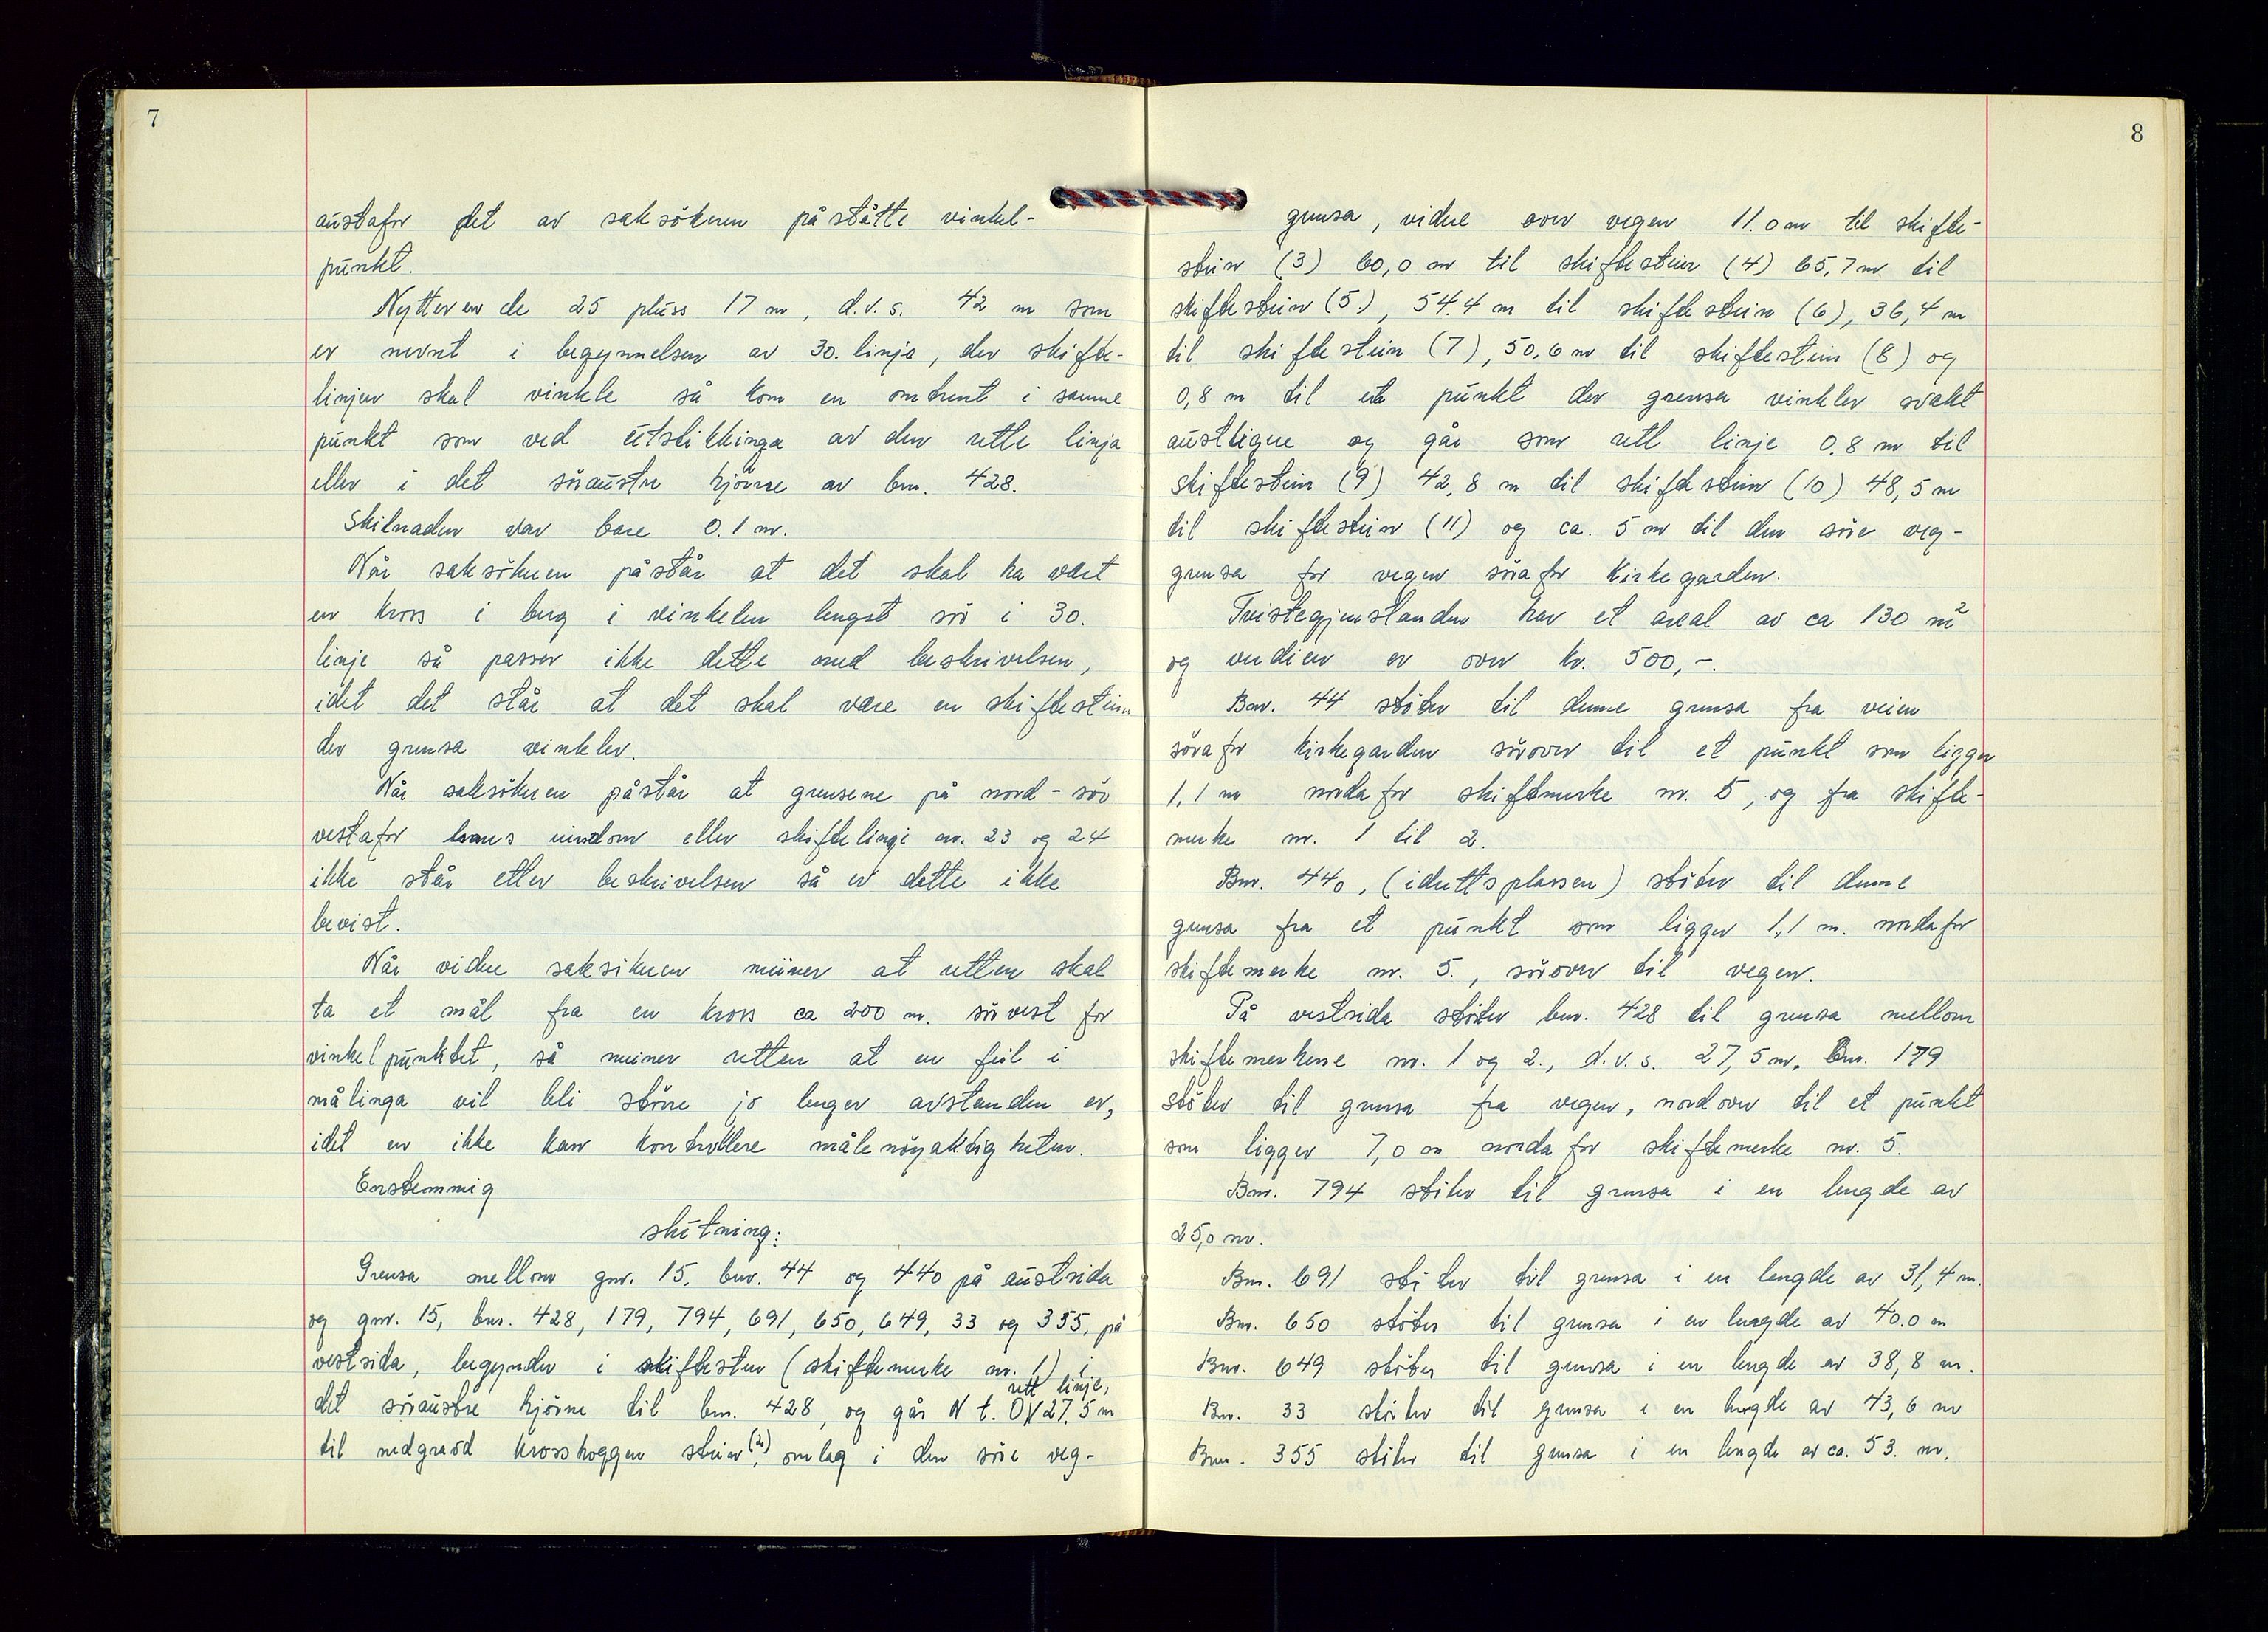 7
austafor det av saksökeren påståtte vinkel-
punkt.
Nytter en de 25 pluss 17 m, d.v.s. 42 m som
er nevnt i begynnelsen av 30. linja, der skifte-
linjen skal vinkle så kom en omtrent i samme
punkt som ved utstikkinga av den rette linja
eller i det söraustre hjörne av bnr. 428.
Skilnaden var bare 0.1 m.
Når saksökeren påstår at det skal ha vært
en kross i berg i vinkelen lengst sör i 30.
linje så passer ikke dette med beskrivelsen,
idet det står at det skal være en skiftestein
der grensa vinkler.
Når saksökeren påstår at grensene på nord-sör
vestafor hans eiendom eller skiftelinje nr. 23 og 24
ikke står etter beskrivelsen så er dette ikke
bevist.
Når videre saksökeren meiner at retten skal
ta et mål fra en kross ca 200 m. sörvest for
vinkelpunktet, så meiner retten at en feil i
målinga vil bli större jo lenger avstanden er,
idet en ikke kan kontrollere målenöyaktigheten.
Enstemmig
slutning:
Grensa mellom gnr. 15, bnr. 44 og 440 på austsida
og gnr. 15, bnr. 428, 179, 794, 691, 650, 649, 33 og 355, på
vestsida, begynder i skiftesten (skiftemerke nr. 1) i
det söraustre hjörne til bnr. 428, og går N t. Ö rett linje, 27,5 m
til nedgravd krosshoggen stein (2), omlag i den söre veg-
8
grensa, videre over vegen 11.0 m til skifte-
stein (3) 60,0 m til skiftestein (4) 65,7 m til
skiftestein (5), 54.4 m til skiftestein (6), 36,4 m
til skiftestein (7), 50,6 m til skiftestein (8) og
0,8 m til et punkt der grensa vinkler svakt
austligere og går som rett linje 0.8 m til
skiftestein (9) 42,8 m til skiftestein (10) 48,5 m
til skiftestein (11) og ca. 5 m til den söre veg-
grensa for vegen sörafor kirkegarden.
Tvistegjenstanden har et areal av ca 130 m²
og verdien er over kr. 500,-.
Bnr. 44 stöter til denne grensa fra veien
sörafor kirkegarden sörover til et punkt som ligger
1,1 m nordafor skiftemerke nr. 5, og fra skifte-
merke nr. 1 til 2.
Bnr. 440, (idrettsplassen) stöter til denne
grensa fra et punkt som ligger 1,1 m. nordafor
skiftemerke nr. 5., sörover til vegen.
På vestsida stöter bnr. 428 til grensa mellom
skiftemerkene nr. 1 og 2., d.v.s. 27,5 m. Bnr. 179
stöter til grensa fra vegen, nordover til et punkt
som ligger 7,0 m nordafor skiftemerke nr. 5.
Bnr. 794 stöter til grensa i en lengde av
25,0 m.
Bnr. 691 stöter til grensa i en lengde av 31,4 m.
Bnr. 650 stöter til grensa i en lengde av 40.0 m
Bnr. 649 stöter til grensa i en lengde av 38,8 m.
Bnr. 33 stöter til grensa i en lengde av 43,6 m
Bnr. 355 stöter til grensa i en lengde av ca. 53. m.